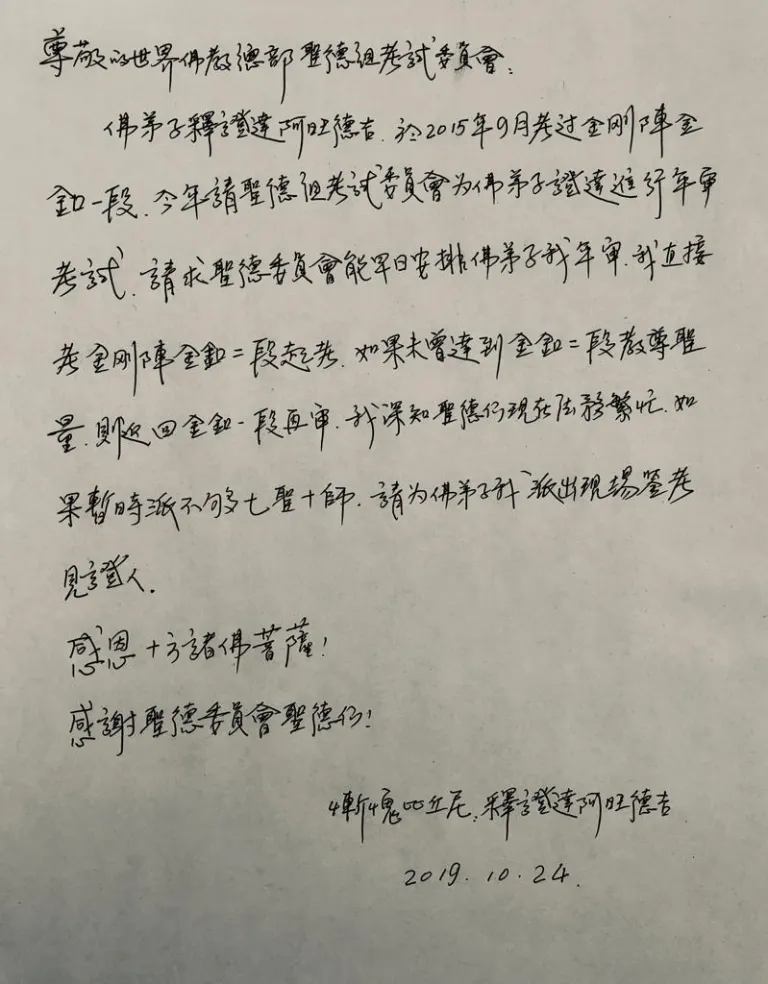 尊敬的世界佛教總部聖德組考試委員會：
佛弟子釋證達阿旺德吉，於2015年9月考过金刚陣金
釦一段，今年請聖德組考試委員會为佛弟子證達進行年审
考試，請求聖德委員會能早日安排佛弟子我年审，我直接
考金刚陣金釦二段起考，如果未曾達到金釦二段教尊聖
量，則返回金釦一段再审，我深知聖德们現在法務繁忙，如
果暫時派不够七聖十師，請为佛弟子我派出現場签考
見證人。
感恩十方諸佛菩薩！
感謝聖德委員會聖德们！
慚愧比丘尼：釋證達阿旺德吉
2019.10.24.